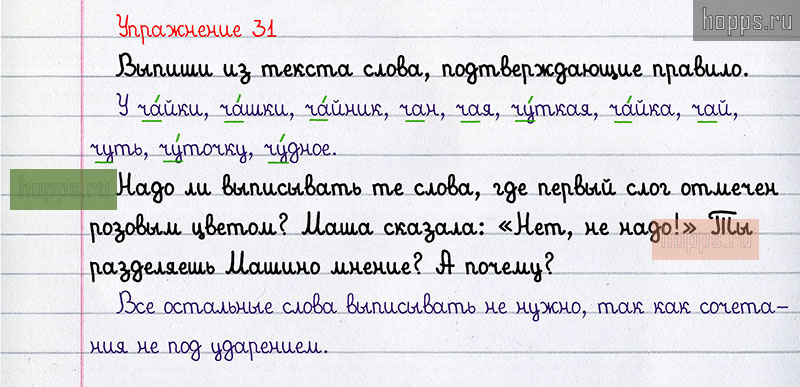 hopps.ru
Упражнение 31
Выпиши из текста слова, подтверждающие правило.
У ча́йки, ча́шки, ча́йник, чан, чая, чу́ткая, ча́йка, чай,
чуть, чу́точку, чу́дное.
hopps.ru
Надо ли выписывать те слова, где первый слог отмечен
розовым цветом? Маша сказала: «Нет, не надо!» Ты
hopps.ru
разделяешь Машино мнение? А почему?
Все остальные слова выписывать не нужно, так как сочета-
ния не под ударением.